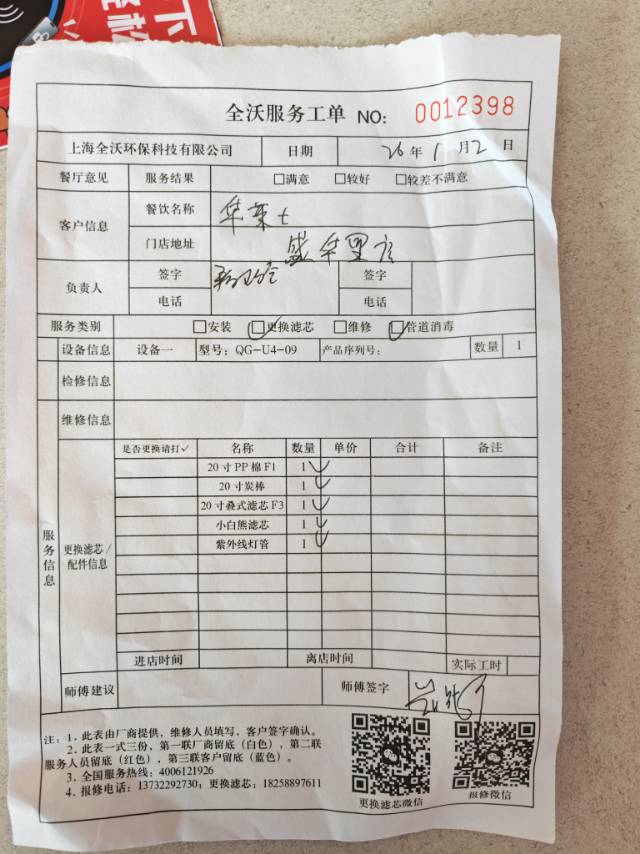 下
全沃服务工单 NO: 0012398
上海全沃环保科技有限公司 日期 26年1月2日
餐厅意见 服务结果 □满意 □较好 □较差不满意
客户信息 餐饮名称 华莱士
门店地址 盛华里店
负责人 签字 签字
电话 电话
服务类别 □安装 □更换滤芯 □维修 □管道消毒
设备信息 设备一 型号: QG-U4-09 产品序列号: 数量 1
检修信息
维修信息
服务信息
更换滤芯/配件信息
是否更换请打✓ 名称 数量 单价 合计 备注
20寸PP棉F1 1 ✓
20寸炭棒 1 ✓
20寸叠式滤芯F3 1 ✓
小白熊滤芯 1 ✓
紫外线灯管 1 ✓
进店时间 离店时间 实际工时
师傅建议 师傅签字
注: 1. 此表由厂商提供, 维修人员填写, 客户签字确认。
2. 此表一式三份, 第一联厂商留底(白色), 第二联
服务人员留底(红色), 第三联客户留底(蓝色)。
3. 全国服务热线: 4006121926
4. 报修电话: 13732292730; 更换滤芯: 18258897611
更换滤芯微信 报修微信